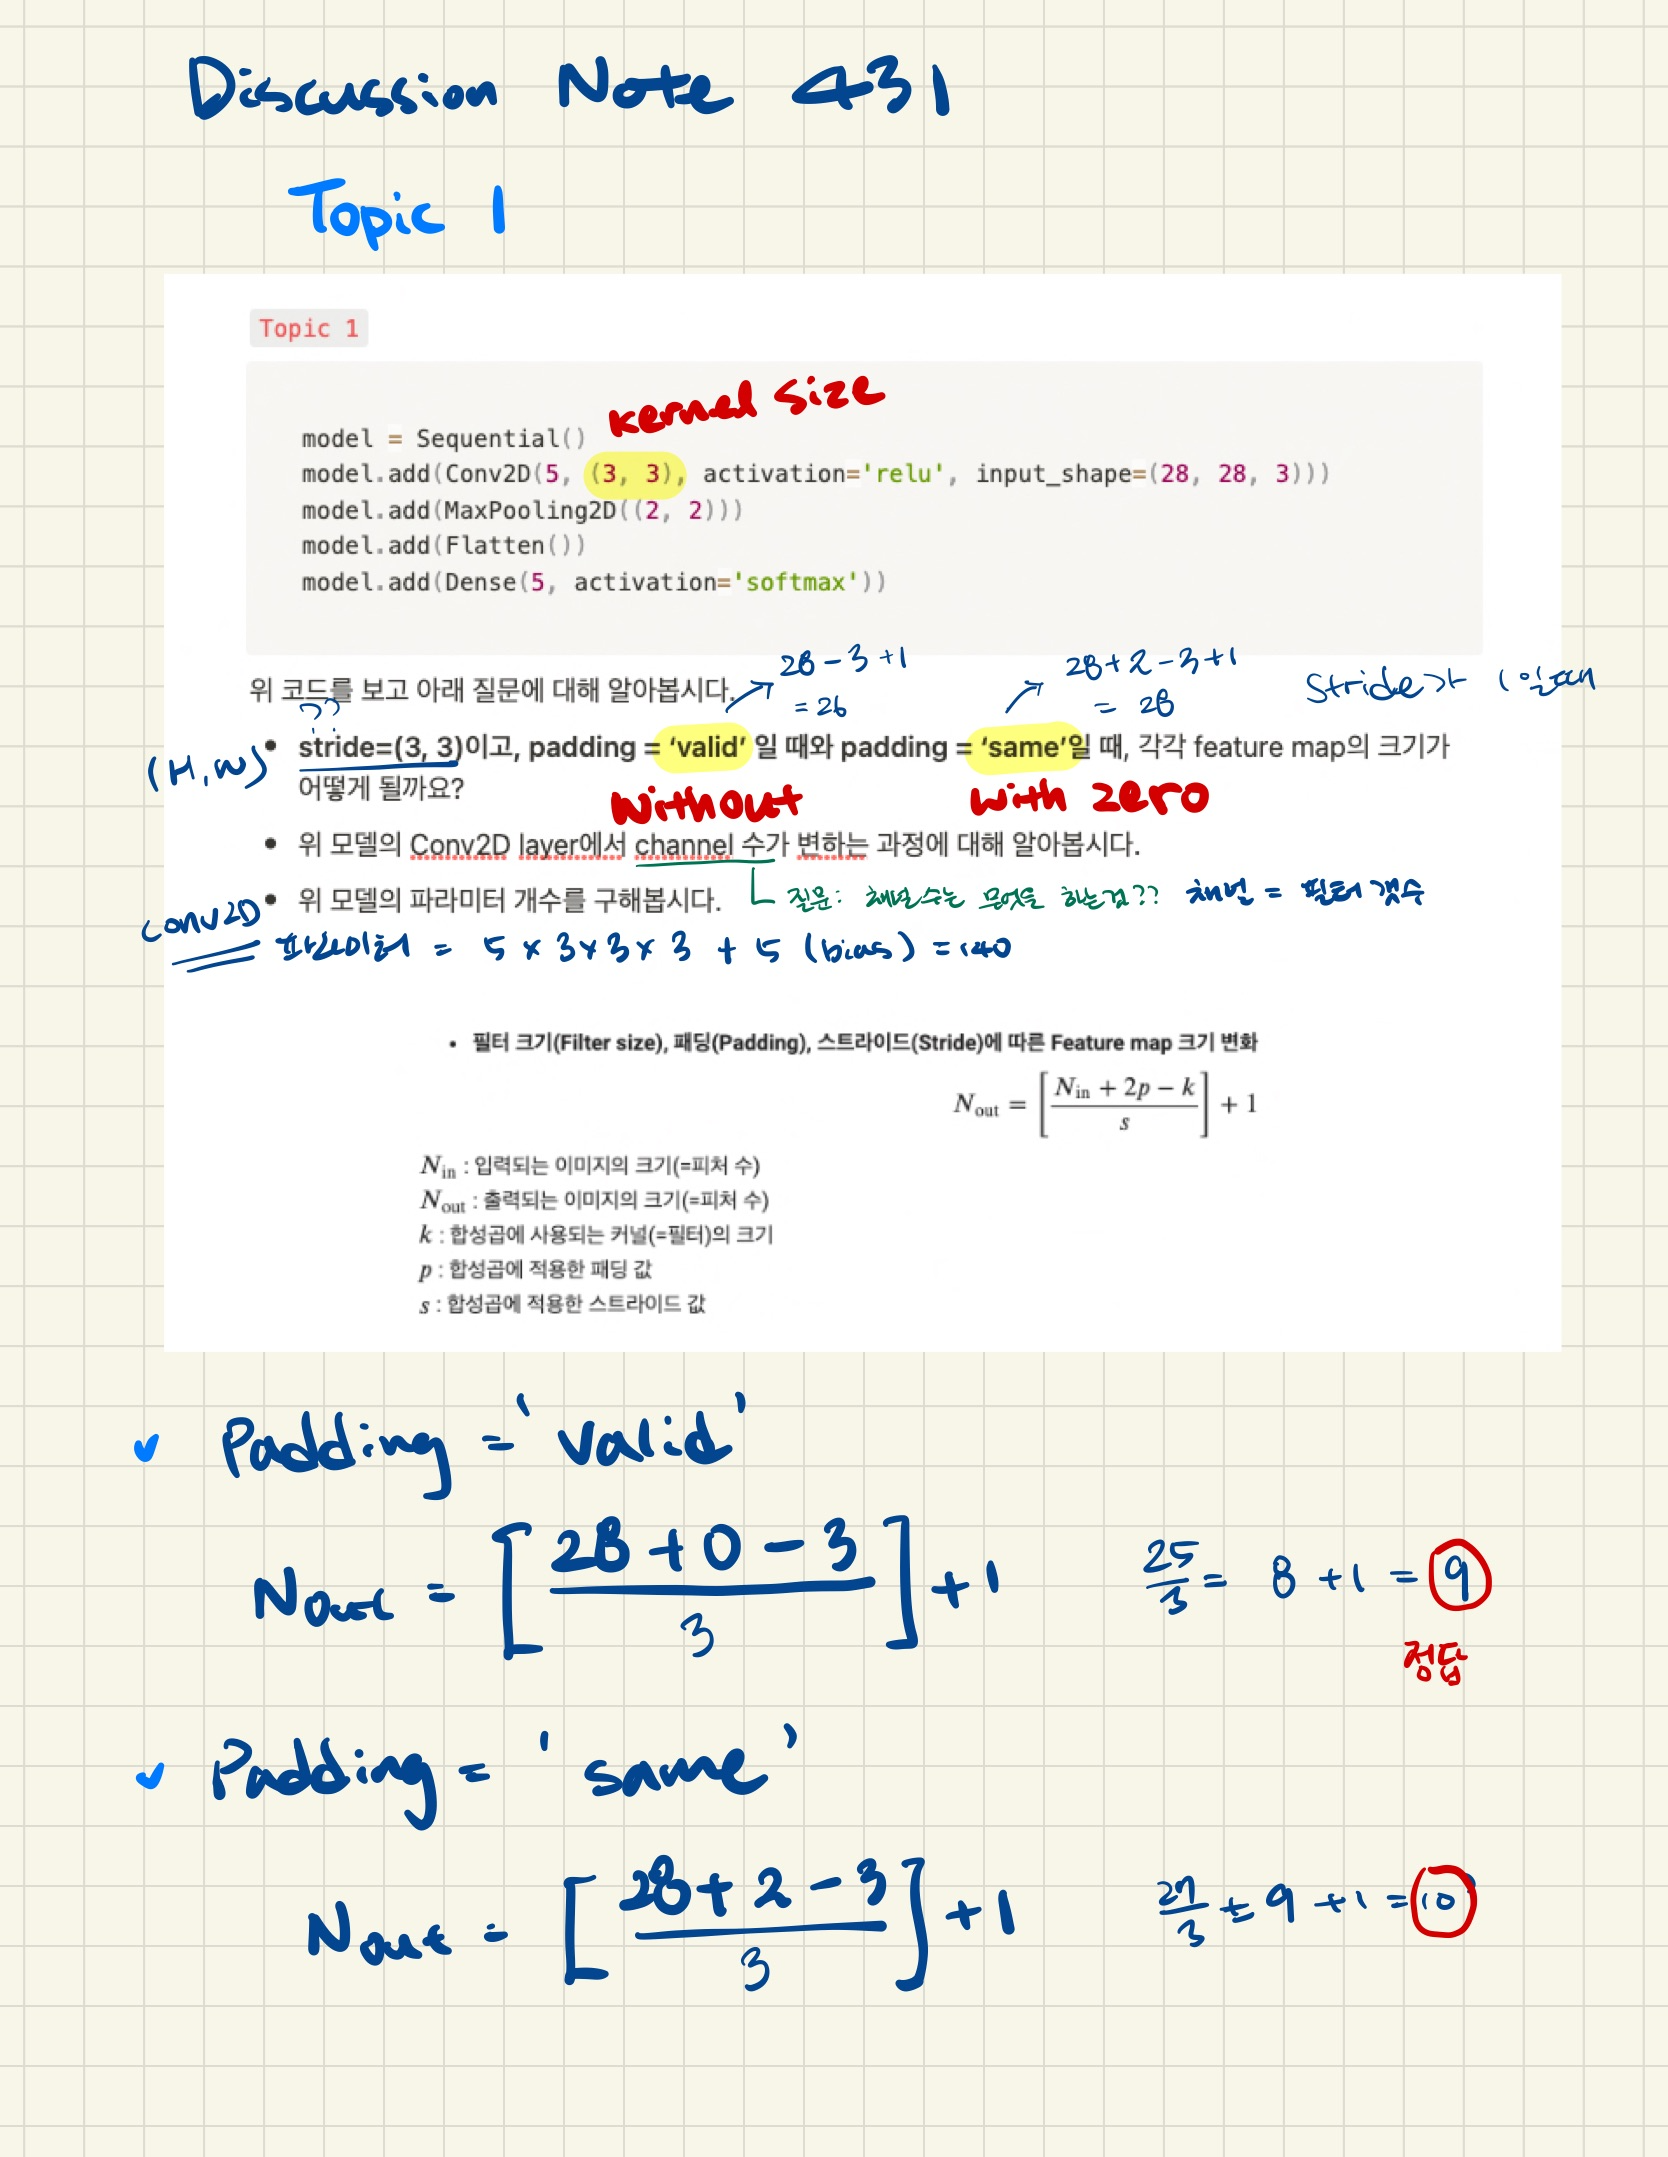 Discussion Note 431
Topic 1
Topic 1
kernel size
model = Sequential()
model.add(Conv2D(5, (3, 3), activation='relu', input_shape=(28, 28, 3)))
model.add(MaxPooling2D((2, 2)))
model.add(Flatten())
model.add(Dense(5, activation='softmax'))
28 - 3 + 1
= 26
28 + 2 - 3 + 1
= 28
Stride가 1일때
위 코드를 보고 아래 질문에 대해 알아봅시다.
??
(H,W)
• stride=(3, 3)이고, padding = ‘valid’ 일 때와 padding = ‘same’일 때, 각각 feature map의 크기가
어떻게 될까요?
without
with zero
• 위 모델의 Conv2D layer에서 channel 수가 변하는 과정에 대해 알아봅시다.
• 위 모델의 파라미터 개수를 구해봅시다.
질문: 채널수는 무엇을 하는걸?? 채널 = 필터 갯수
Conv2D
파라미터 = 5 × 3 × 3 × 3 + 5 (bias) = 140
• 필터 크기(Filter size), 패딩(Padding), 스트라이드(Stride)에 따른 Feature map 크기 변화
N_out = [ (N_in + 2p − k) / s ] + 1
N_in : 입력되는 이미지의 크기(=피처 수)
N_out : 출력되는 이미지의 크기(=피처 수)
k : 합성곱에 사용되는 커널(=필터)의 크기
p : 합성곱에 적용한 패딩 값
s : 합성곱에 적용한 스트라이드 값
✓ Padding = 'valid'
Nout = [ (28 + 0 - 3) / 3 ] + 1
25/3 = 8 + 1 = 9
정답
✓ Padding = 'same'
Nout = [ (28 + 2 - 3) / 3 ] + 1
27/3 = 9 + 1 = 10